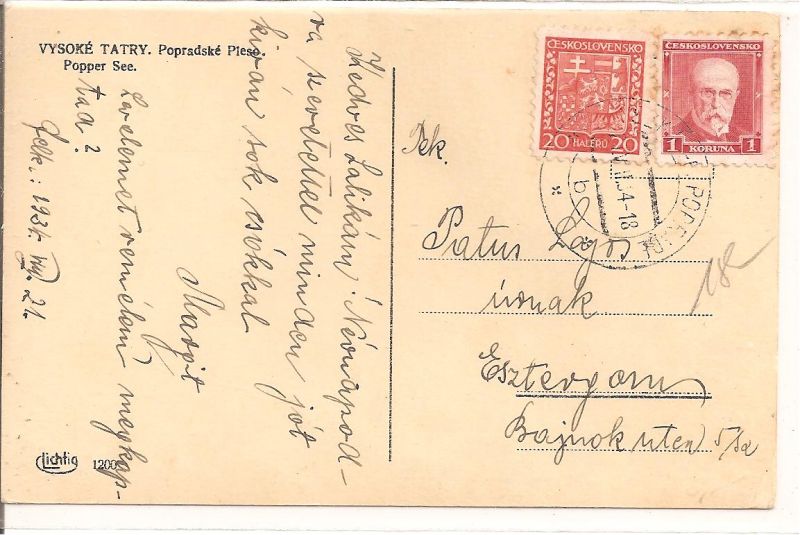 VYSOKÉ TATRY. Popradské Pleso.
Popper See.
Kedves Lalikám! Névnapod-
ra szeretettel minden jót
kiván sok csókkal
Margit
Levelemet remélem megkap-
tad?
1934. 21.
Lichtig
1200
ČESKOSLOVENSKO
20 HALÉŘŮ 20
ČESKOSLOVENSKO
1 KORUNA 1
34-18
b
Tek.
Patus Lajos
úrnak
Esztergom
Bajnok utca 5/a